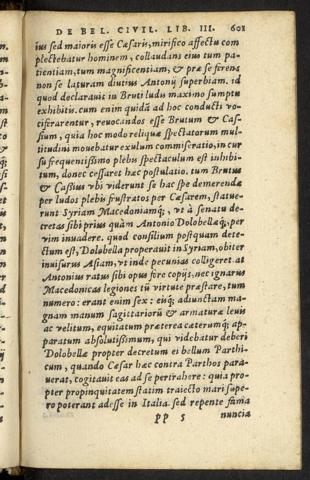 DE BEL. CIVIL. LIB. III. 601
ius sed maioris esse Cæsaris, mirifico affectu com
plectebatur hominem, collaudans eius tum pa-
tientiam, tum magnificentiam, & præ se ferens
non se laturam diutius Antonij superbiam. id
quod declarauit in Bruti ludis maximo sumptu
exhibitis. cum enim quidã ad hoc conducti vo-
ciferarentur, reuocandos esse Brutum & Cas-
sium, quia hoc modo reliquæ spectatorum mul-
titudini mouebatur exulum commiseratio, in cur
su frequentissimo plebis spectaculum est inhibi-
tum, donec cessaret hæc postulatio. tum Brutus
& Cassius vbi viderunt se hac spe demerendæ
per ludos plebis frustratos per Cæsarem, statue-
runt Syriam Macedoniamq; vt à senatu de-
cretas sibi prius quàm Antonio Dolobellæq;, per
vim inuadere. quod consilium postquam dete-
ctum est, Dolobella properauit in Syriam, obiter
inuisurus Asiam, vt inde pecunias colligeret. at
Antonius ratus sibi opus fore copijs, nec ignarus
Macedonicas legiones tũ virtute præstare, tum
numero: erant enim sex: eisq; adiunctam ma-
gnam manum sagittariorũ & armaturæ leuis
ac velitum, equitatum præterea cæterumq; ap-
paratum absolutissimum, qui videbatur deberi
Dolobellæ propter decretum ei bellum Parthi-
cum, quando Cæsar hæc contra Parthos para-
uerat, cogitauit eas ad se pertrahere: quia pro-
pter propinquitatem statim traiecto mari supe-
ro poterant adesse in Italia. sed repente fama
PP 5 nuncia